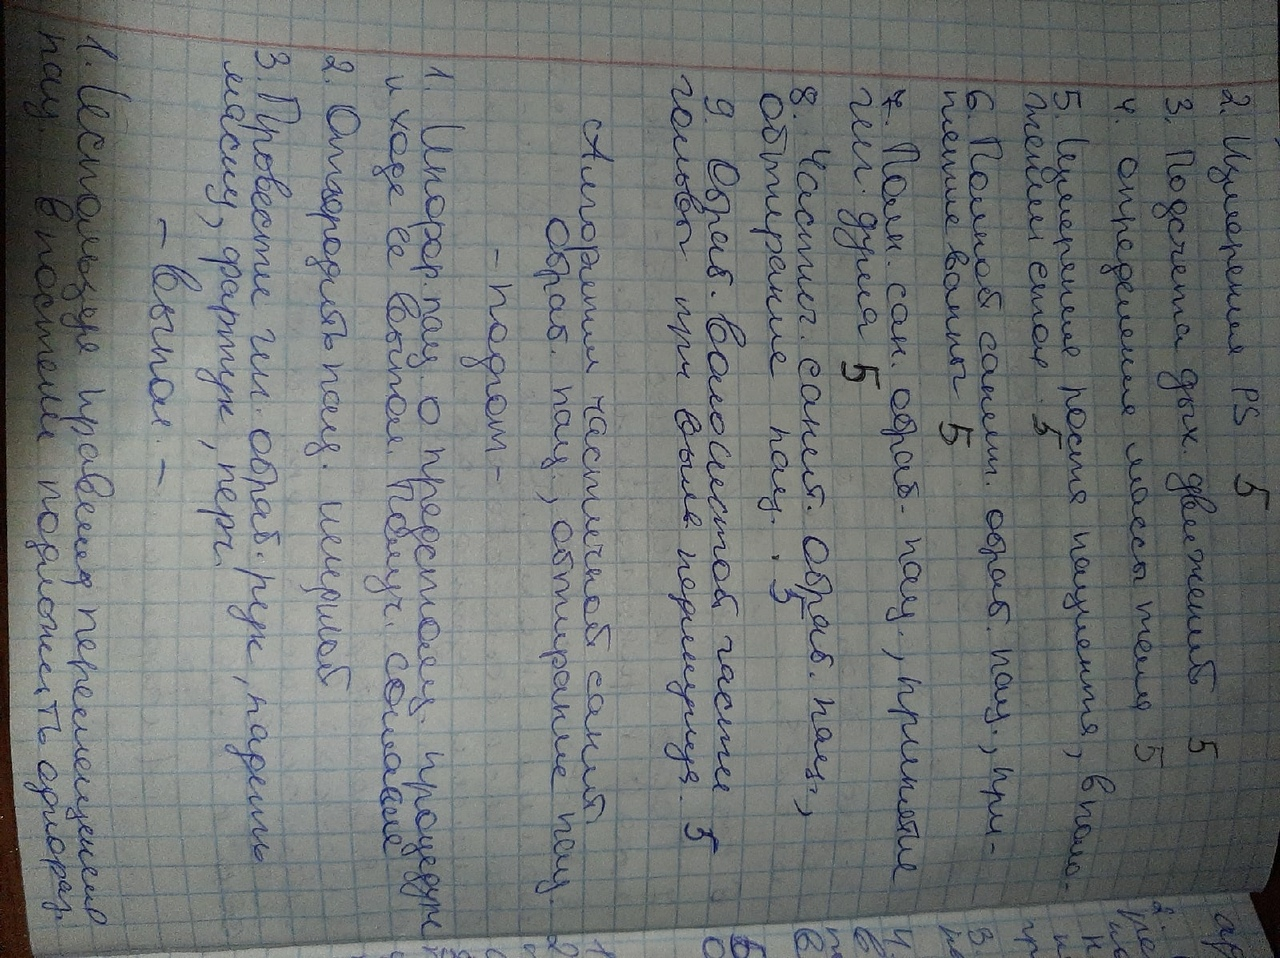 2. Измерения PS 5
3. Подсчета дых. движений 5
4. определения массы тела 5
5. Измерение роста пациента, в поло-
жении стоя. 5
6. Полной санит. обраб. пац., при-
нятие ванны 5
7. Полн. сан. обраб. пац., принятие
гиг. душа 5
8. Частич. санит. обраб. пац.,
обтирание пац. 5
9. Обраб. волосистой части
головы при выявл. педикулеза. 5
Алгоритм частичной санит
обраб. пац., обтирание пац.
- подгот -
1. Информ. пац. о предстоящ. процедуре
и ходе её выпол. Получ. согласие
2. Отгородить пац. ширмой
3. Провести гиг. обраб. рук, надеть
маску, фартук, перч.
- выпол. -
1. Используя правила перемещения
пац. в постели подложить однораз.